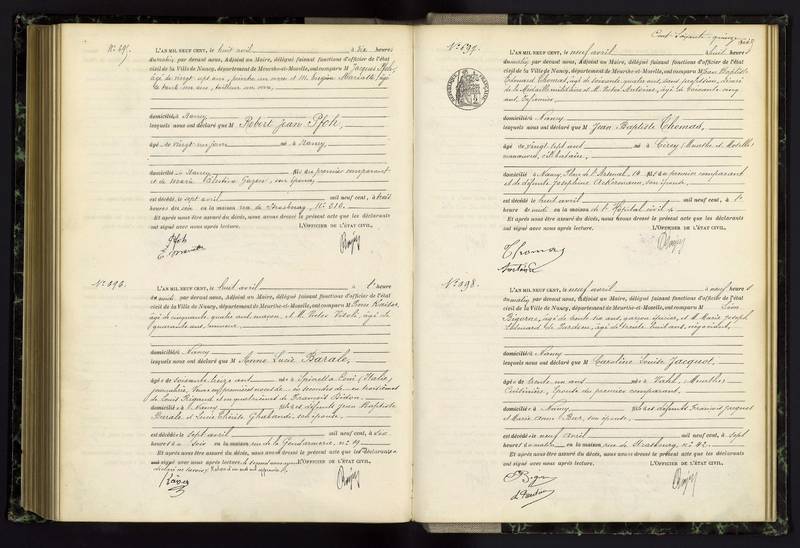 N° 495.
L'AN MIL NEUF CENT, le huit avril à dix heures
du matin, par devant nous, Adjoint au Maire, délégué faisant fonctions d'officier de l'état
civil de la Ville de Nancy, département de Meurthe-et-Moselle, ont comparu M Jacques Pfoh,
âgé de vingt sept ans, peintre en verre et M. Eugène âgé
de trente un ans, tailleur en verre,
domiciliés à Nancy
lesquels nous ont déclaré que M Robert Jean Pfoh,
âgé de vingt un jours né à Nancy
domicilié à Nancy fils du premier comparant
et de Marie Valentine son épouse
est décédé le sept avril mil neuf cent, à trois
heures du soir en la maison rue de Strasbourg, N° 216.
Et après nous être assuré du décès, nous avons dressé le présent acte que les déclarants
ont signé avec nous après lecture. L'OFFICIER DE L'ÉTAT CIVIL,
Pfoh
N° 496.
L'AN MIL NEUF CENT, le huit avril à
par devant nous, Adjoint au Maire, délégué faisant fonctions d'officier de l'état
civil de la Ville de Nancy, département de Meurthe-et-Moselle, ont comparu M
âgé de cinquante quatre ans, maçon, et M. Victor âgé de
quarante ans,
domiciliés à Nancy
lesquels nous ont déclaré que M Anne Lucie Barale,
âgée de soixante treize ans née à (Italie)
de Louis Rigaud et en quatrièmes de François
domiciliée à Nancy fille des défunts Jean Baptiste
Barale et son épouse
est décédée le sept avril mil neuf cent, à six
heures du soir en la maison rue de la Gendarmerie, n° 19
Et après nous être assuré du décès, nous avons dressé le présent acte que les déclarants
ont signé avec nous après lecture. L'OFFICIER DE L'ÉTAT CIVIL,
Cent soixante quinze
N° 497.
L'AN MIL NEUF CENT, le neuf avril à huit heures
du matin, par devant nous, Adjoint au Maire, délégué faisant fonctions d'officier de l'état
civil de la Ville de Nancy, département de Meurthe-et-Moselle, ont comparu M Jean Baptiste
Edouard Thomas, âgé de soixante quatre ans, sans profession, décoré
de la Médaille militaire et M. Victor Antoine, âgé de cinquante cinq
ans, infirmier
domiciliés à Nancy
lesquels nous ont déclaré que M Jean Baptiste Thomas,
âgé de vingt sept ans né à Cirey (Meurthe et Moselle)
célibataire,
domicilié à Nancy, Place de l'Arsenal, 14 fils du premier comparant
et de défunte Joséphine Ackermann, son épouse
est décédé le huit avril mil neuf cent, à
heure de midi en la maison de l'Hôpital civil
Et après nous être assuré du décès, nous avons dressé le présent acte que les déclarants
ont signé avec nous après lecture. L'OFFICIER DE L'ÉTAT CIVIL,
Thomas
Antoine
N° 498.
L'AN MIL NEUF CENT, le neuf avril à neuf heures
du matin, par devant nous, Adjoint au Maire, délégué faisant fonctions d'officier de l'état
civil de la Ville de Nancy, département de Meurthe-et-Moselle, ont comparu M Léon
âgé de trente six ans, garçon épicier, et M. Marie Joseph
âgé de trente huit ans, négociant,
domiciliés à Nancy
lesquels nous ont déclaré que M Caroline Louise Jacquot,
âgée de trente un ans née à Meurthe
Cuisinière, épouse du premier comparant,
domiciliée à Nancy fille des défunts François Jacquot
et Marie Anne son épouse
est décédée le neuf avril mil neuf cent, à sept
heures du matin, en la maison rue de Strasbourg, n° 42
Et après nous être assuré du décès, nous avons dressé le présent acte que les déclarants
ont signé avec nous après lecture. L'OFFICIER DE L'ÉTAT CIVIL,